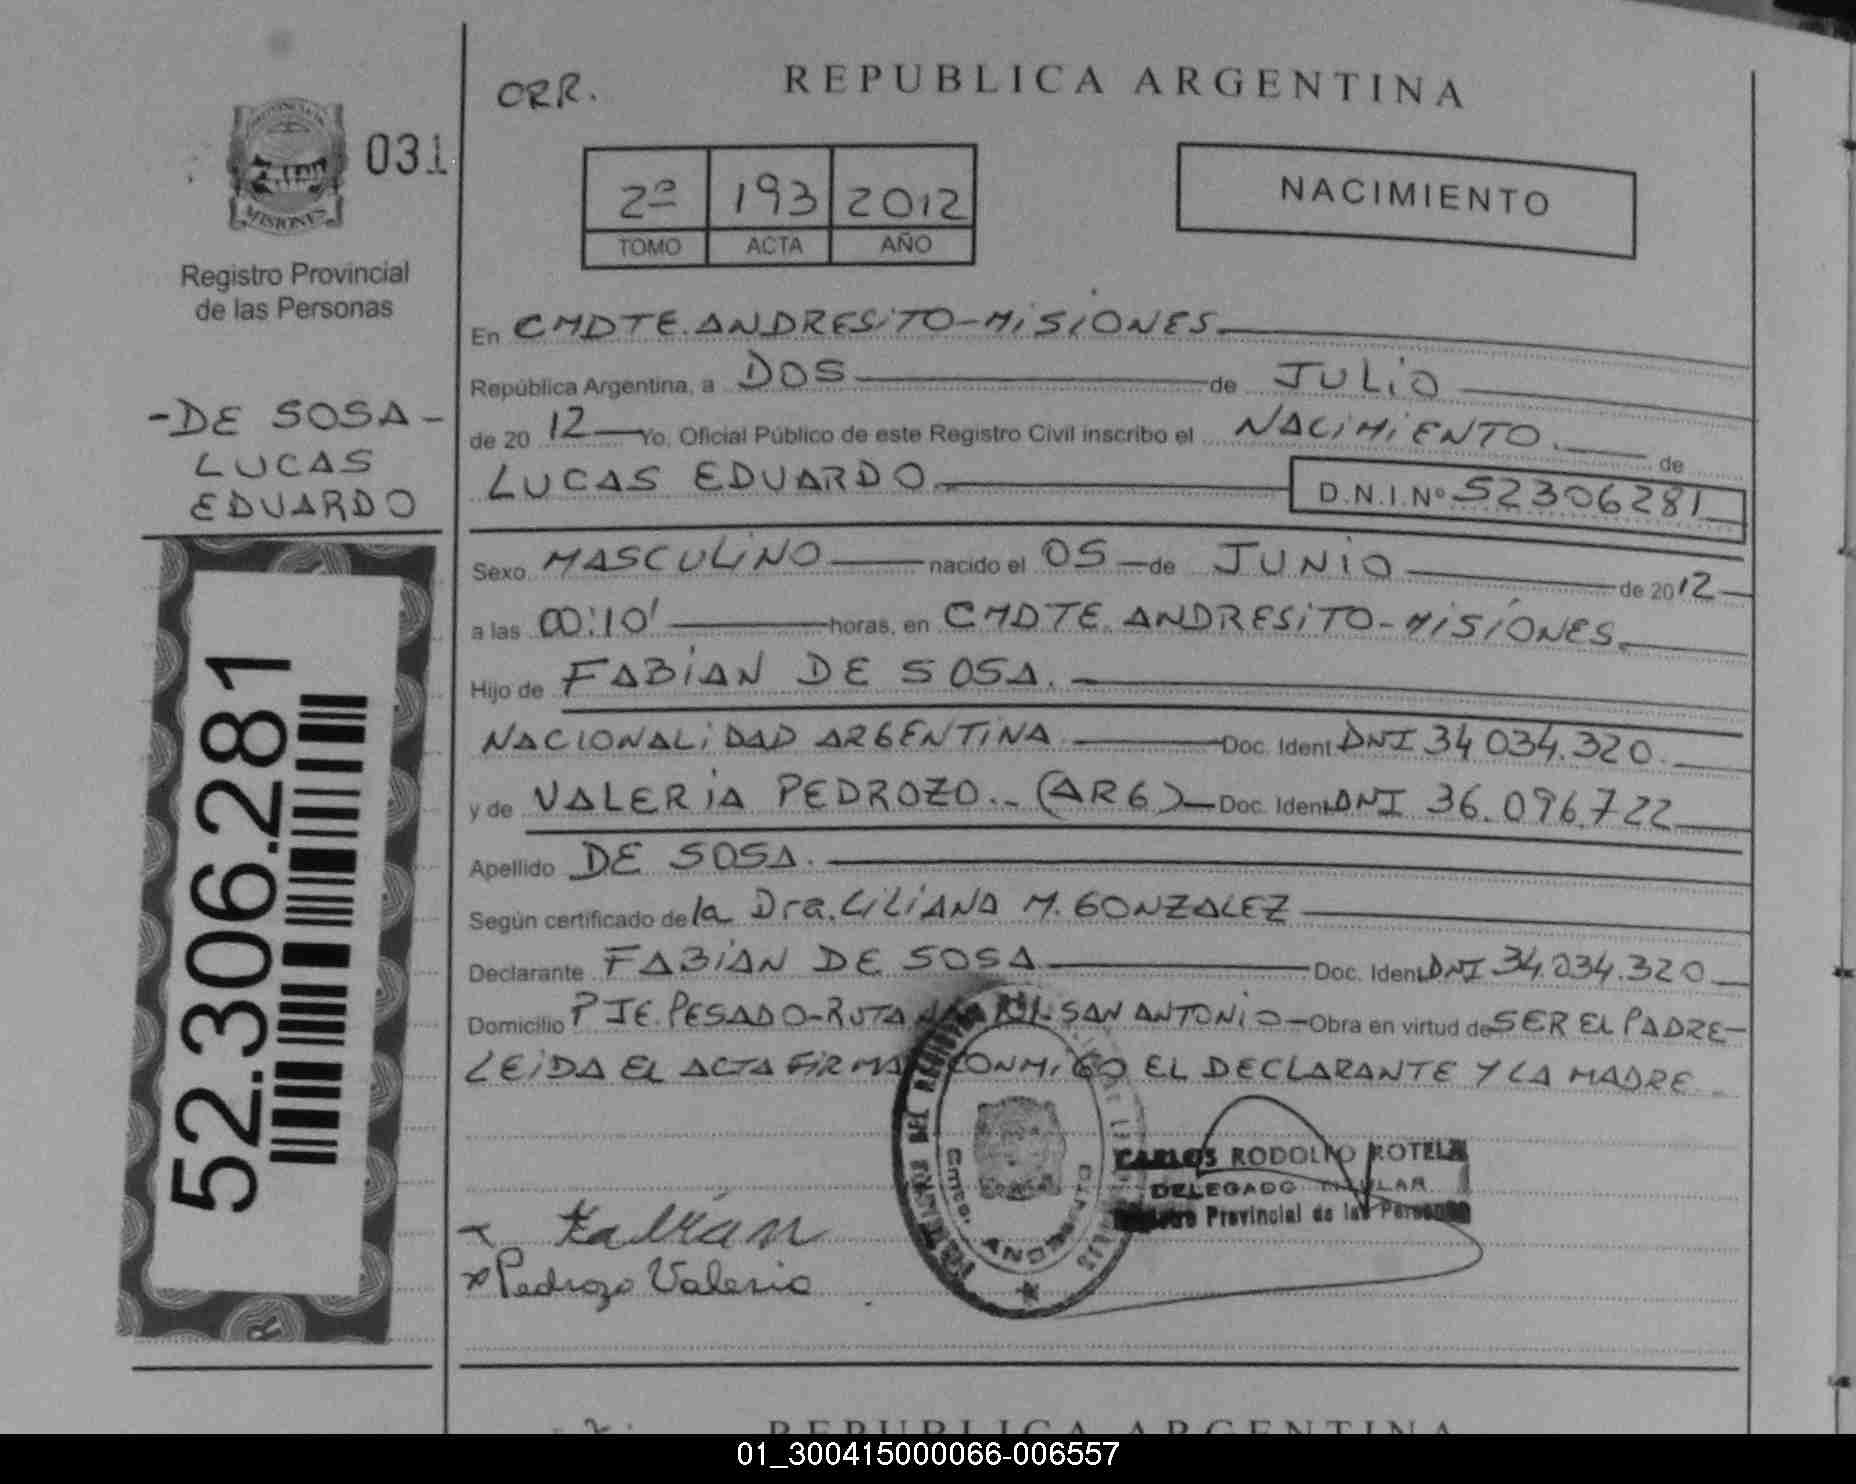 ORR.
REPUBLICA ARGENTINA
MISIONES
031
2º 193 2012
TOMO ACTA AÑO
NACIMIENTO
Registro Provincial
de las Personas
-DE SOSA-
LUCAS
EDUARDO
52.306.281
En CMDTE. ANDRESiTO-MiSiONES
República Argentina, a DOS de JULiO
de 20 12 Yo, Oficial Público de este Registro Civil inscribo el NACiMiENTO. de
LUCAS EDUARDO D.N.I.Nº 52306281
Sexo MASCULiNO nacido el 05 de JUNiO de 2012
a las 00:10' horas, en CMDTE. ANDRESiTO-MiSiONES.
Hijo de FABiAN DE SOSA.
NACIONALiDAD ARGENTiNA Doc. Ident. DNI 34 034.320.
y de VALERiA PEDROZO.- (ARG) Doc. Ident. DNI 36.096.722
Apellido DE SOSA.
Según certificado de la Dra. LiLiANA M. GONZALEZ
Declarante FABiAN DE SOSA Doc. Ident. DNI 34.034.320
Domicilio PJE. PESADO-RUTA SAN ANTONiO- Obra en virtud de SER EL PADRE-
LEiDA EL ACTA FiRMA CONMiGO EL DECLARANTE Y LA MADRE
CARLOS RODOLFO ROTELA
DELEGADO TITULAR
Registro Provincial de las Personas
Cmte. ANDRESITO
x Fabián
x Pedrozo Valeria
REPUBLICA ARGENTINA
01_300415000066-006557